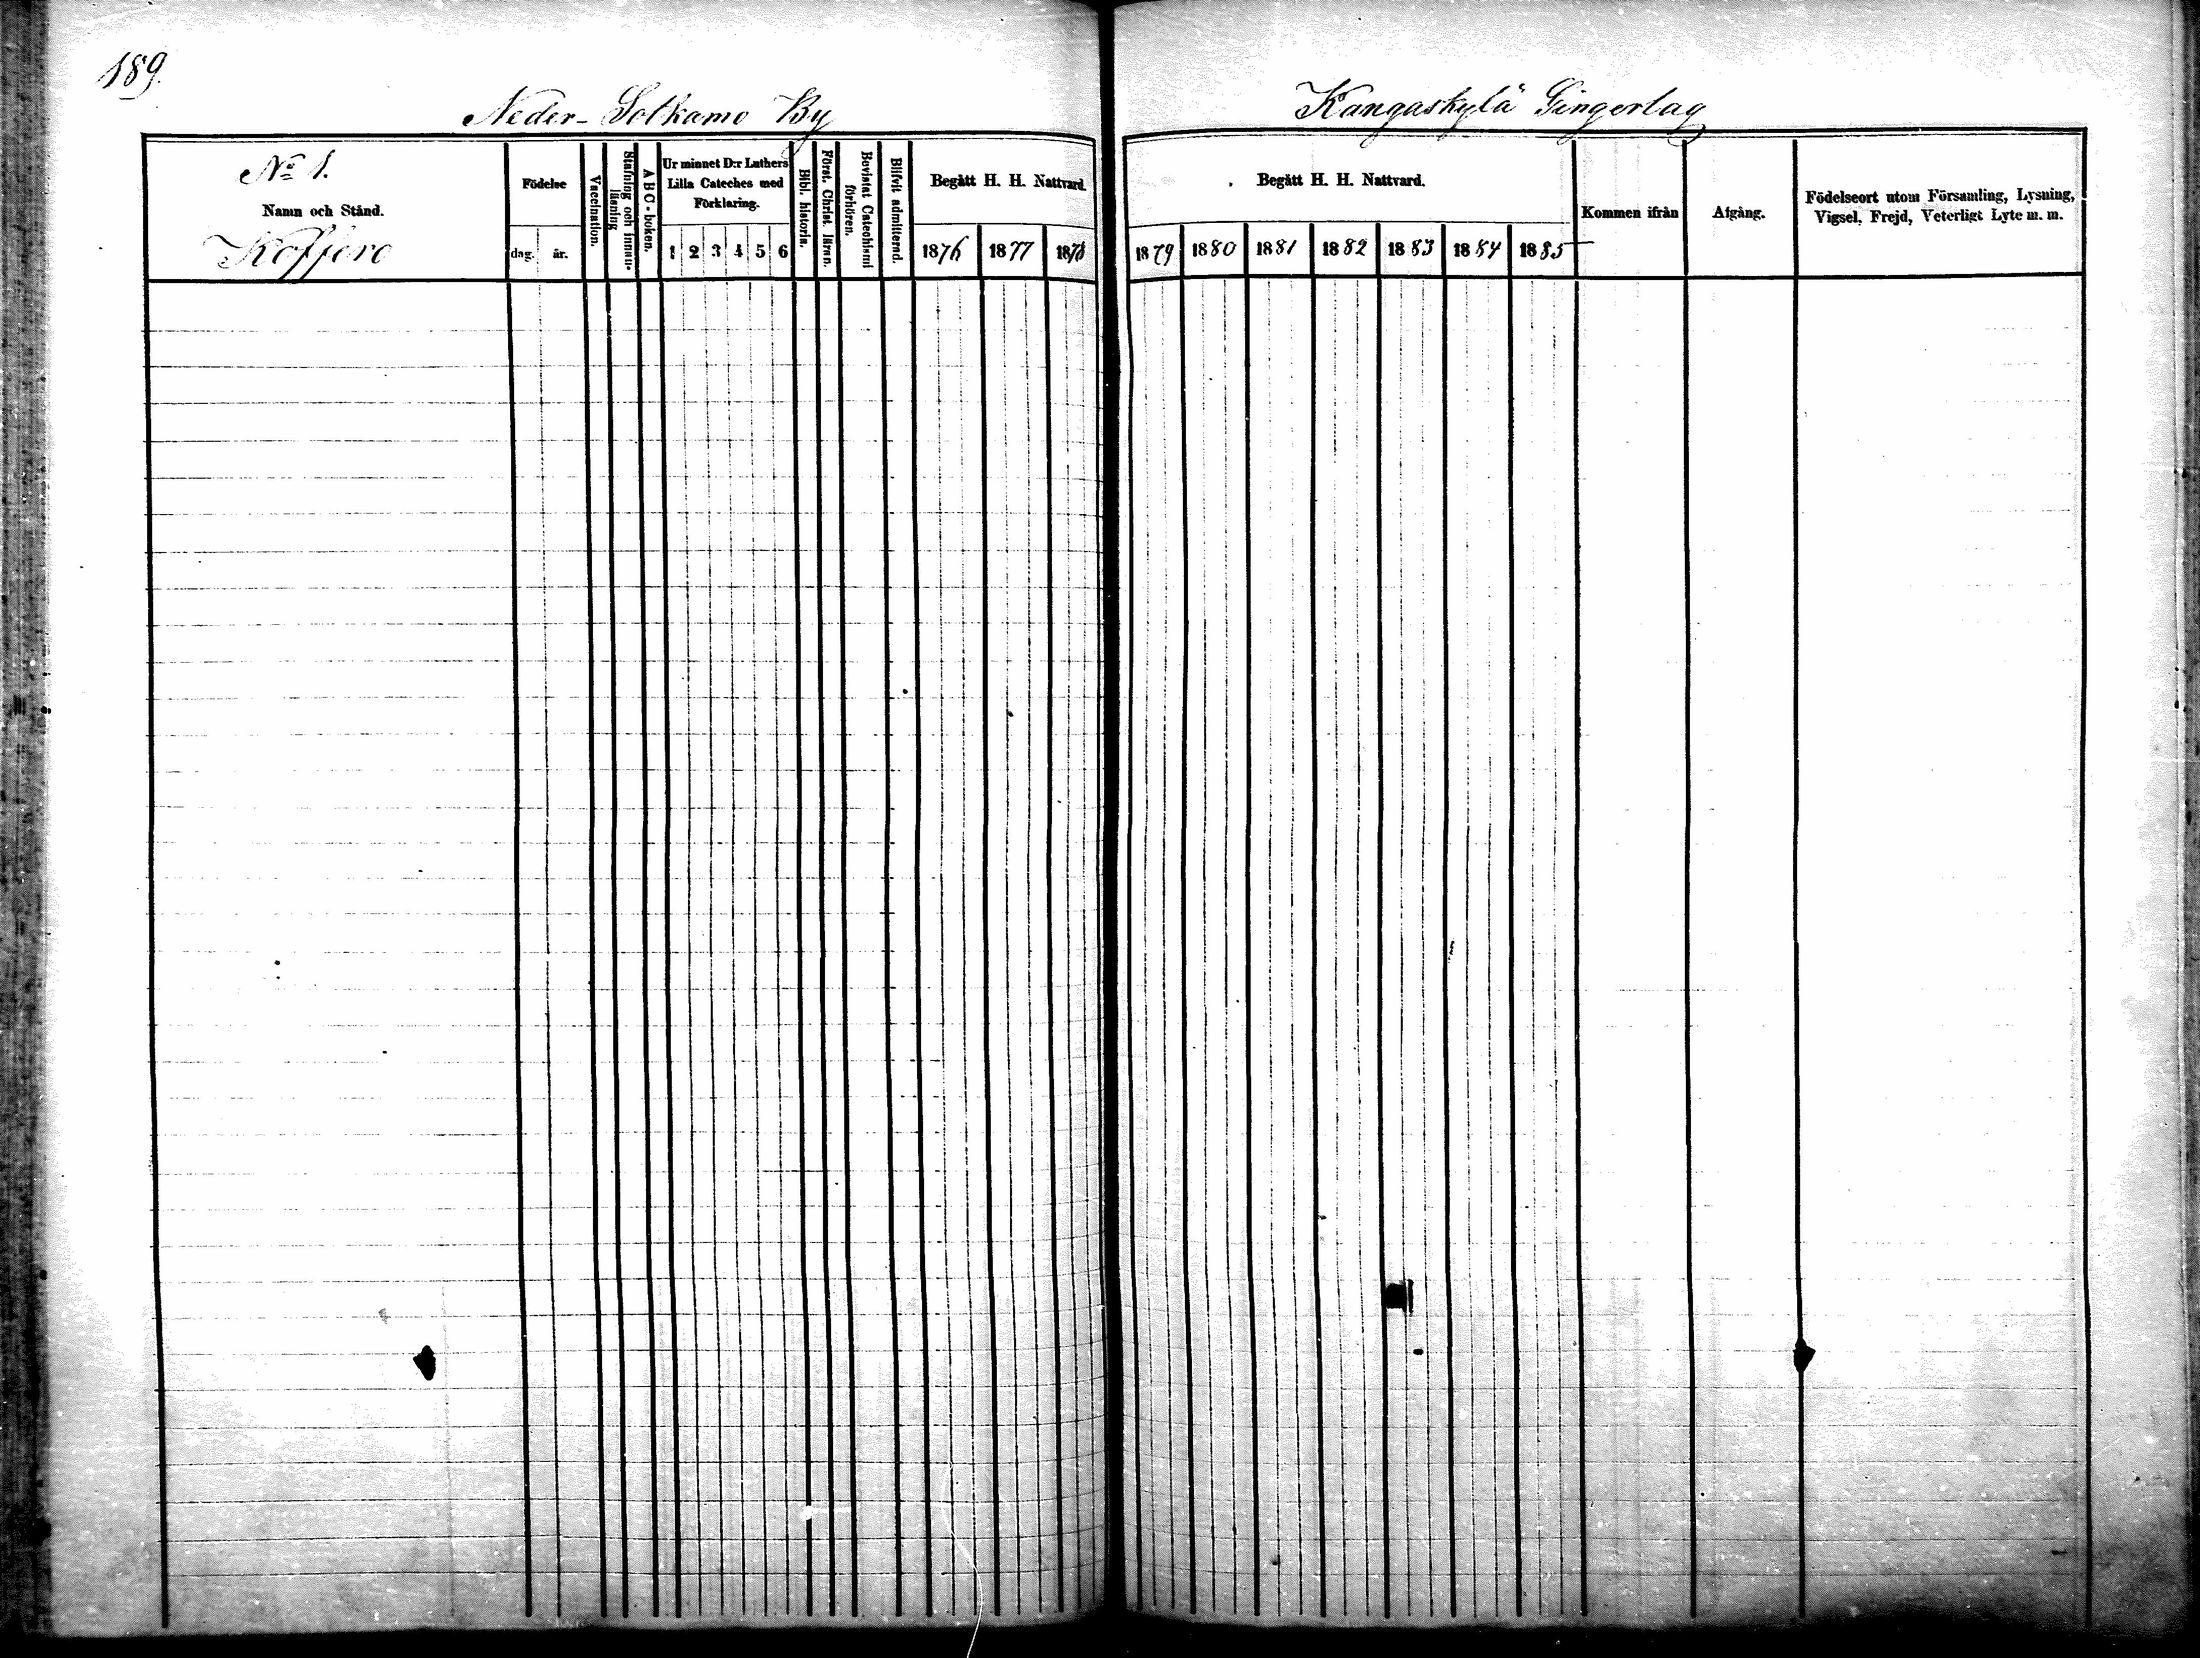 189.
Neder-Sotkamo By
Kangaskylä Gingerlag
No 1.
Namn och Stånd.
Koffero
Födelse
dag. år.
Vaccination.
Stafning och innan-
läsning
A B C - boken.
Ur minnet D:r Luthers
Lilla Cateches med
Förklaring.
1 2 3 4 5 6
Bibl. historia.
Först. Christ. läran.
Bevistat Catechismi
förhören.
Blifvit admitterad.
Begått H. H. Nattvard.
1876 1877 1878
Begått H. H. Nattvard.
1879 1880 1881 1882 1883 1884 1885
Kommen ifrån
Afgång.
Födelseort utom Församling, Lysning,
Vigsel, Frejd, Veterligt Lyte m. m.